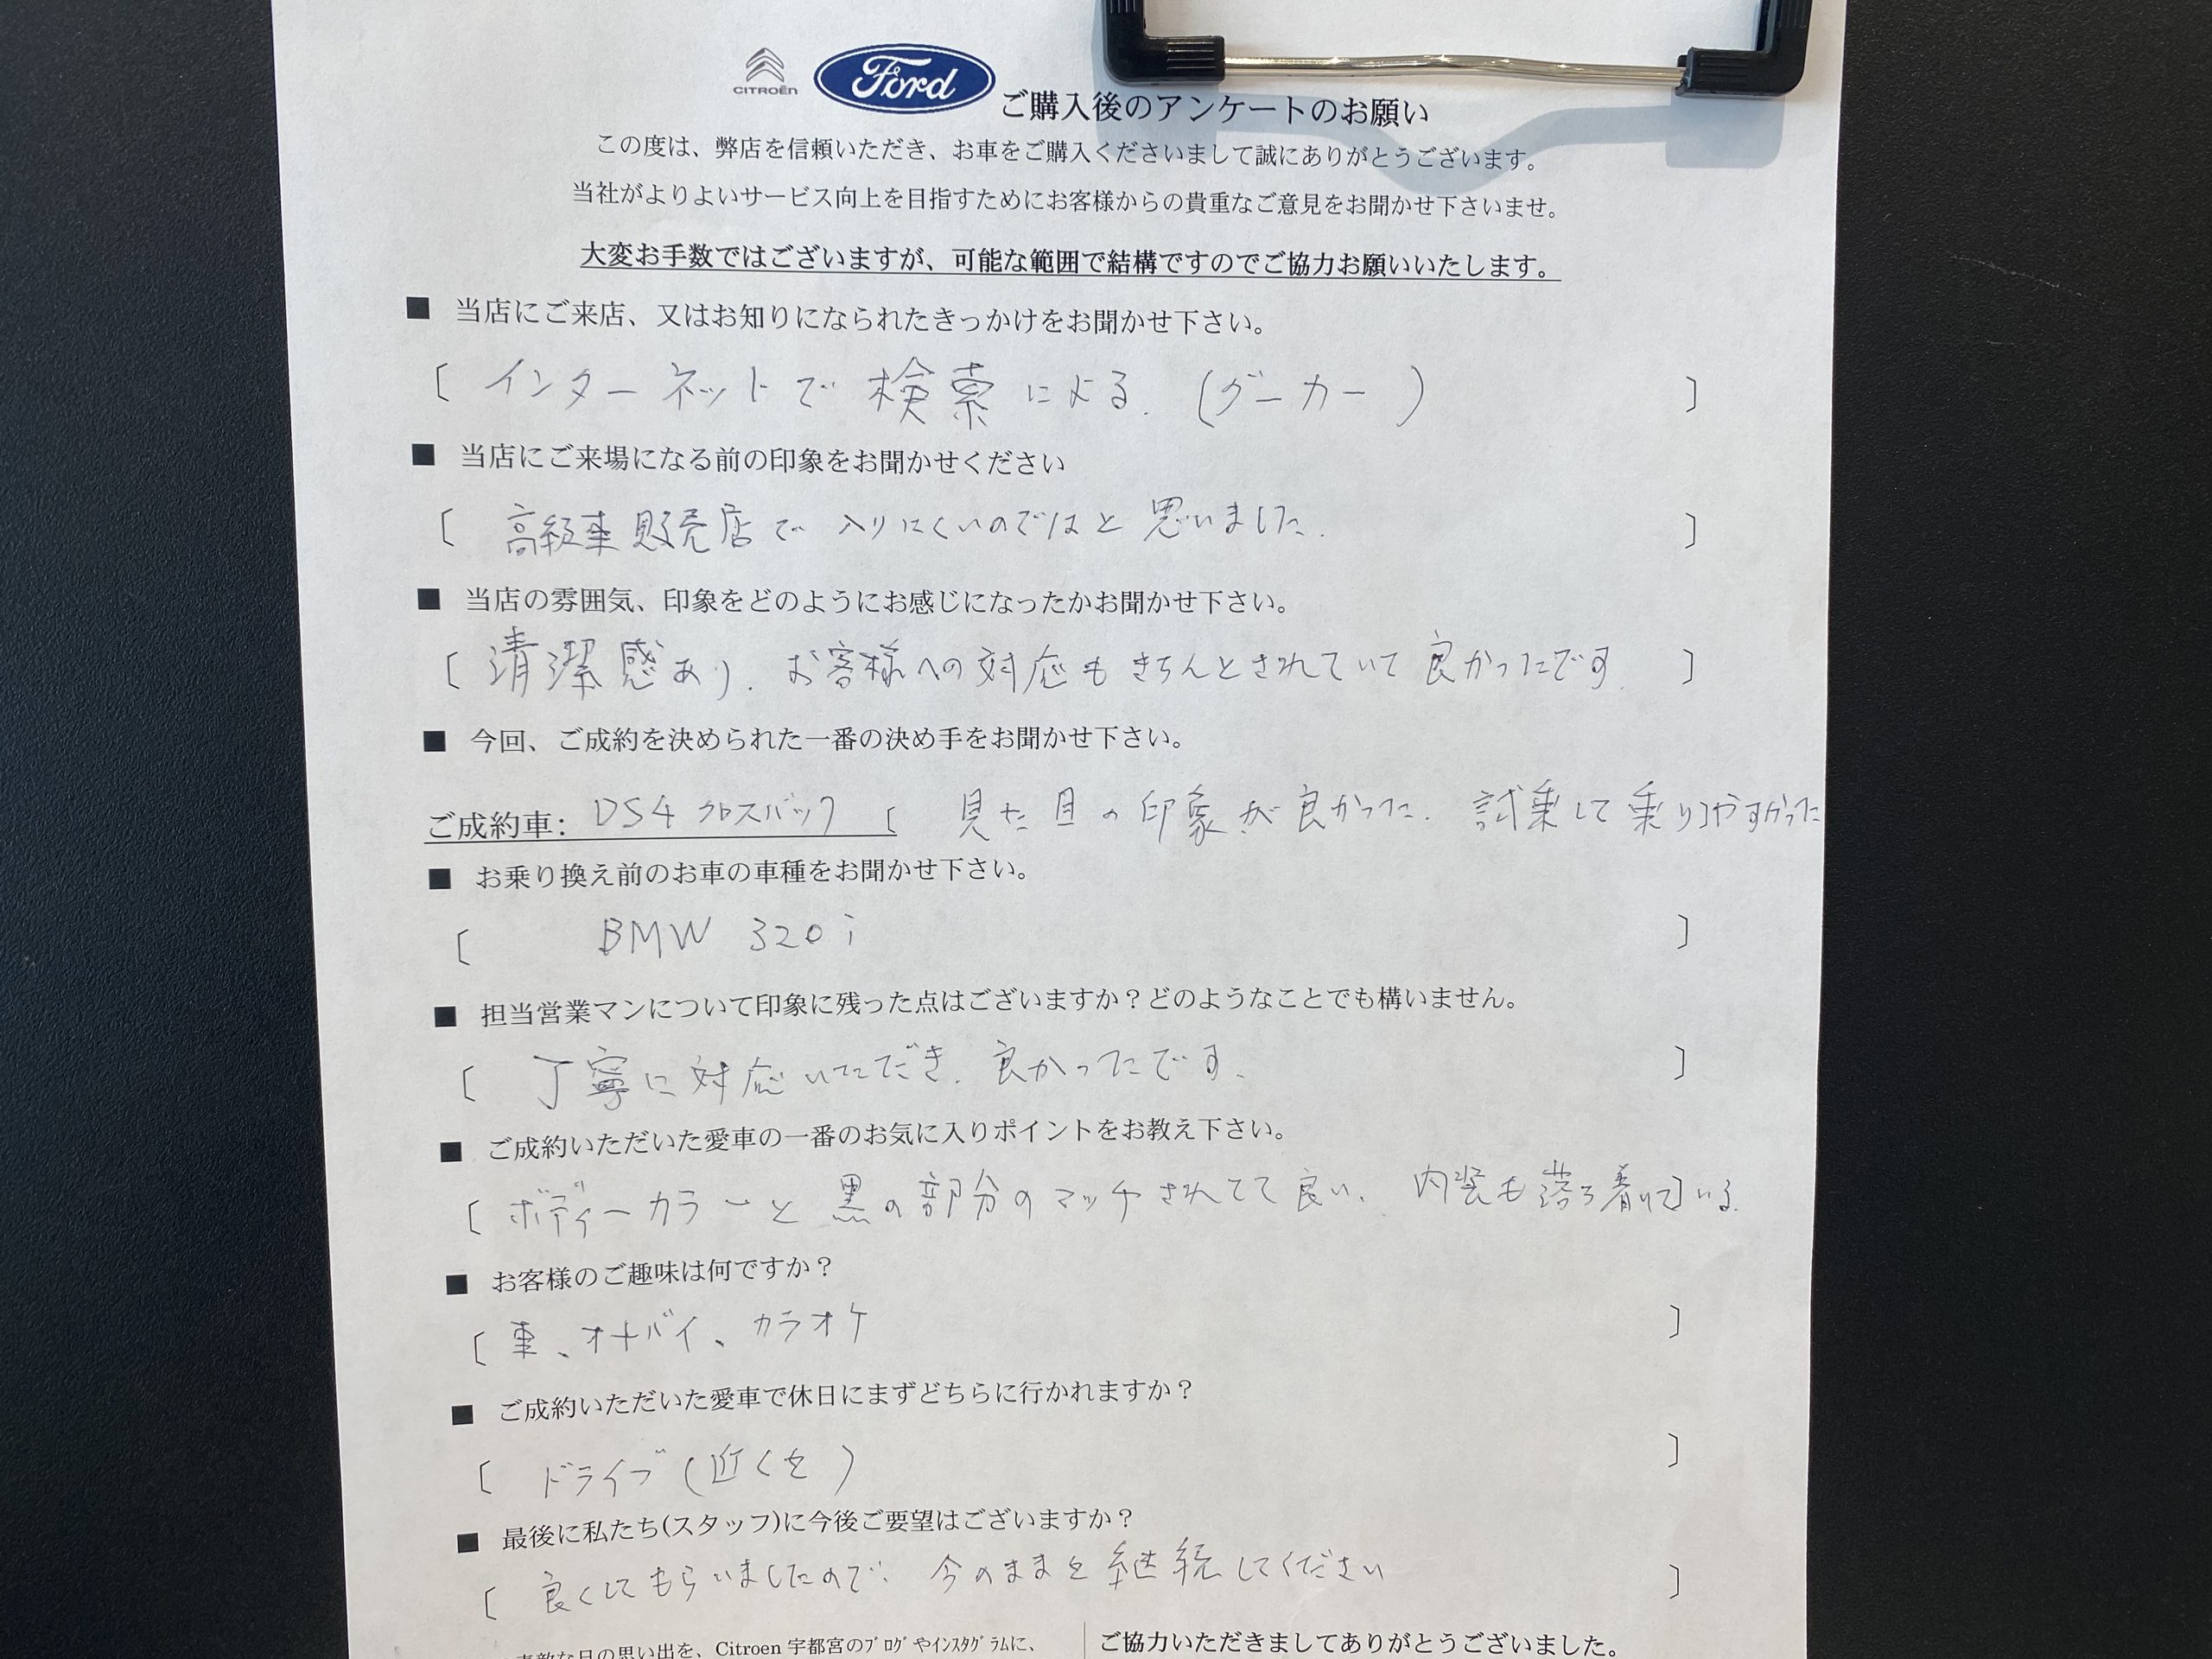 CITROËN
Ford
ご購入後のアンケートのお願い
この度は、弊店を信頼いただき、お車をご購入くださいまして誠にありがとうございます。
当社がよりよいサービス向上を目指すためにお客様からの貴重なご意見をお聞かせ下さいませ。
大変お手数ではございますが、可能な範囲で結構ですのでご協力お願いいたします。
■ 当店にご来店、又はお知りになられたきっかけをお聞かせ下さい。
〔 インターネットで検索による.(グーカー) 〕
■ 当店にご来場になる前の印象をお聞かせください
〔 高級車販売店で入りにくいのではと思いました. 〕
■ 当店の雰囲気、印象をどのようにお感じになったかお聞かせ下さい。
〔 清潔感あり.お客様への対応もきちんとされていて良かったです. 〕
■ 今回、ご成約を決められた一番の決め手をお聞かせ下さい。
ご成約車: DS4 クロスバック 〔 見た目の印象が良かった.試乗して乗りやすかった 〕
■ お乗り換え前のお車の車種をお聞かせ下さい。
〔 BMW 320i 〕
■ 担当営業マンについて印象に残った点はございますか?どのようなことでも構いません。
〔 丁寧に対応いただき.良かったです. 〕
■ ご成約いただいた愛車の一番のお気に入りポイントをお教え下さい。
〔 ボディーカラーと黒の部分のマッチされてて良い.内装も落ち着いている. 〕
■ お客様のご趣味は何ですか?
〔 車、オートバイ、カラオケ 〕
■ ご成約いただいた愛車で休日にまずどちらに行かれますか?
〔 ドライブ(近くを) 〕
■ 最後に私たち(スタッフ)に今後ご要望はございますか?
〔 良くしてもらいましたので.今のままを継続してください 〕
素敵な日の思い出を、Citroen 宇都宮のﾌﾞﾛｸﾞやｲﾝｽﾀｸﾞﾗﾑに、
ご協力いただきましてありがとうございました。